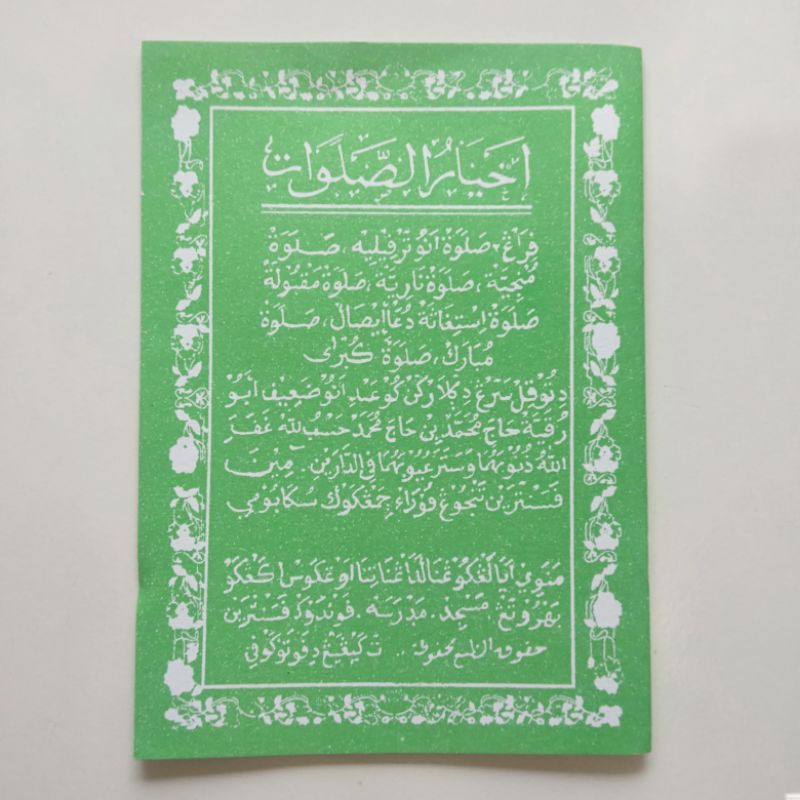 اَخْيَارُ الصَّلَوَات
فِرَاڠ٢ صَلَوٰةْ اَنُوْ تَرْڤِيْلِيْه، صَلَوَةْ
مُنْجِيَّة، صَلَوَةْ نَارِيَة، صَلَوَةْ مَقْبُوْلَةْ
صَلَوَةْ اِسْتِغَاثَةْ دُعَاْ اِيْصَالْ، صَلَوَةْ
مُبَارَكْ، صَلَوَةْ كُبْرٰى
دِنُوْقِلْ سَرْڠ دِكَلَارْكَنْ كُوْ عَبْدِ اَنُوْ ضَعِيْف اَبُوْ
رُقَيَّة حَاجْ مُحَمَّدْ بِنْ حَاجْ مُحَمَّدْ حَسْبُ اللّٰه غَفَرَ
اللّٰهُ ذُنُوْبَهُمَا وَسَتَرَ عُيُوْبَهُمَا فِي الدَّارَيْنِ. مِنْ
ڤَسَنْتْرَيْن تَنْجُوْڠ ڤُوْرَاءْ جَمْڠكَوْكْ سُكَابُوْمِيْ
مَنَوِيْ اَيَا
مَسْجِد. مَدْرَسَه. ڤَوْنْدَوْكْ ڤَسَنْتْرَيْن
حقوق الطبع محفوظ .. تَكَيْڠِيْڠْ دِڤَوْتَوْكَوْڤِيْ